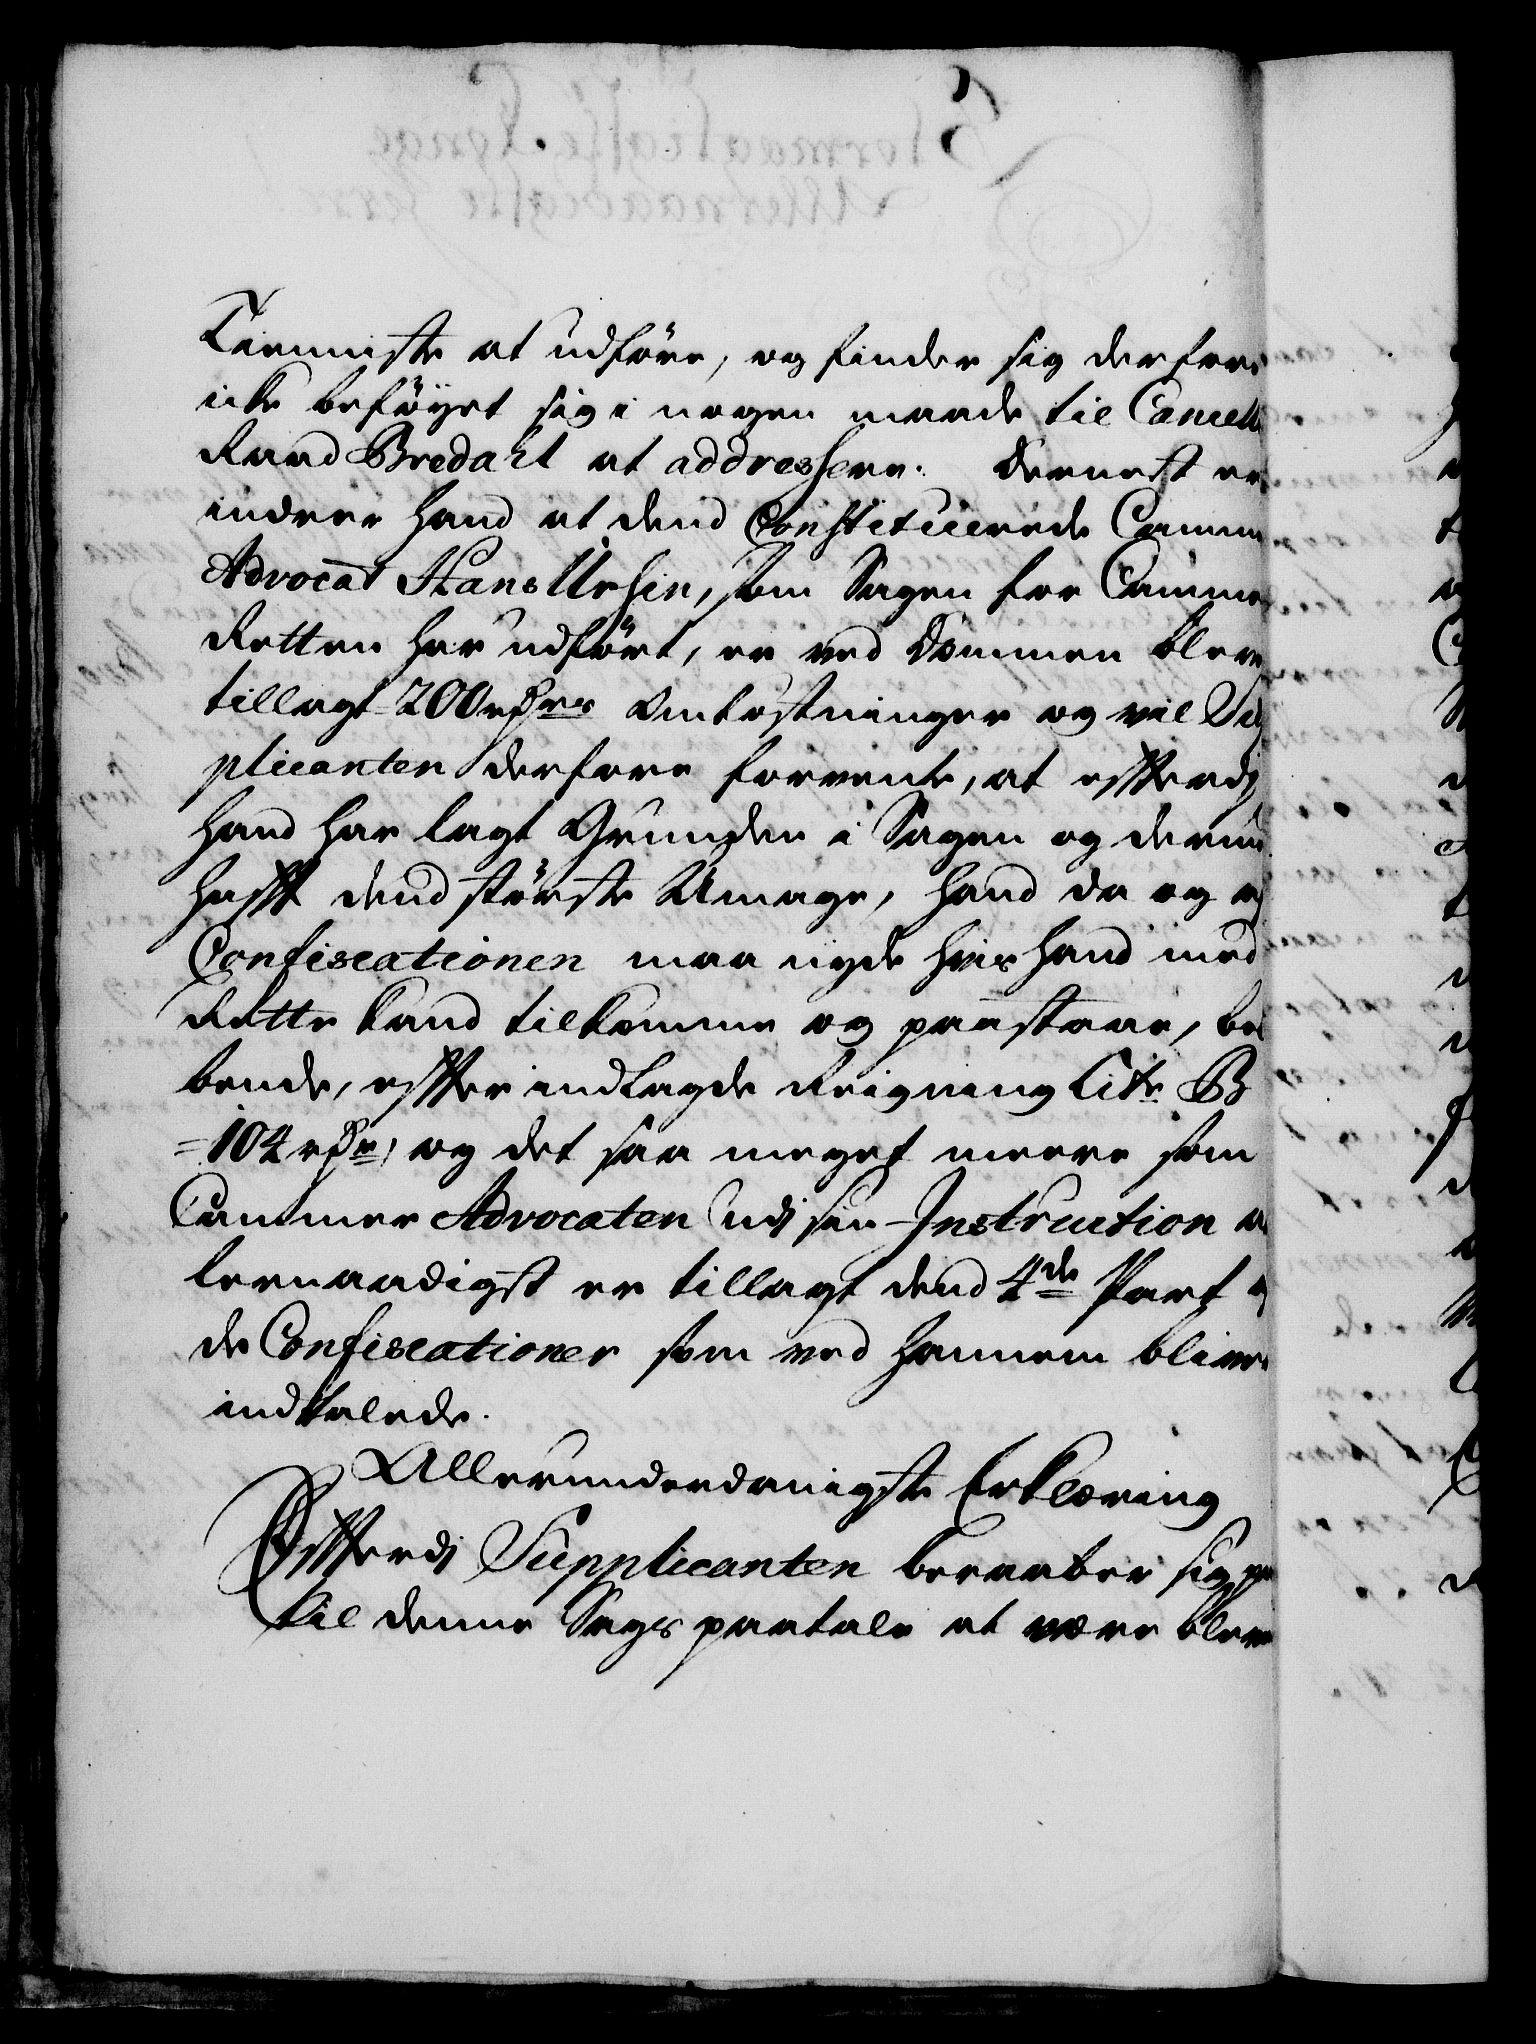 Tienniste at udføre, og finder sig derfore
icke beføyet sig i nogen maade til Cancelli
Raad Bredahl at addressere. Dernest er
indrer hand at dend Constituerede Camm
Advocat Hans Ursin, som Sagen for Cammer
Retten har udført, er ved Dommen blev
tillagt 200 rdrs Omkostninger og vil Sup
plicanten derfore formente, at efftterdj
hand har lagt Grunden i Sagen og derud
hafft dend største Umage, hand da og af
Confiscationen maa nyde hvis hand med
Rette kand tilkomme og paastaar, be
bende, effter indlagde Reigning Litr. B
=104 rdr, og det saa meget meere som
Cammer Advocaten udj sin Instruction al
lernaadigst er tillagt dend 4de Part af
de Confiscationer som ved hannem blive
indtalede.
Allerunderdanigste Erklæring
Effterdj Supplicanten beraaber sig paa
til denne Sags paatale at være blev